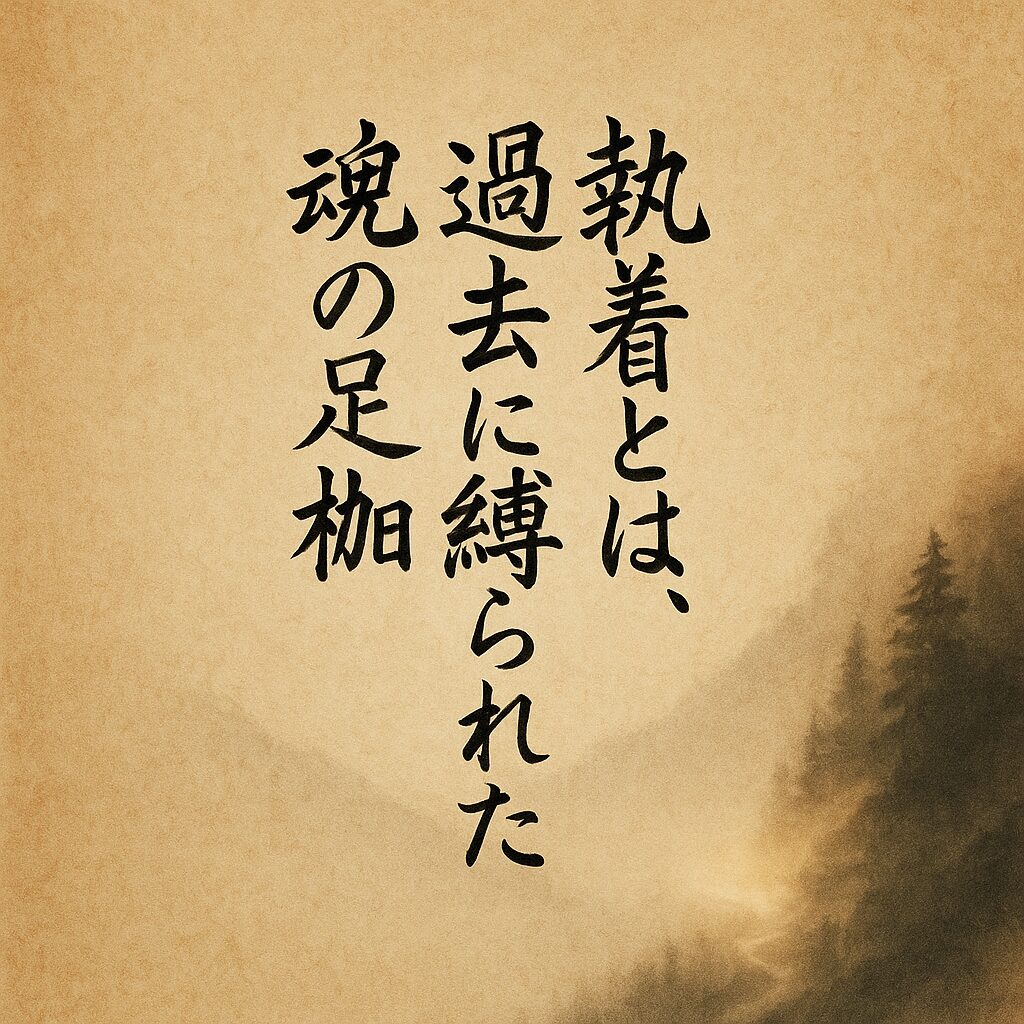 執着とは、
過去に縛られた
魂の足枷